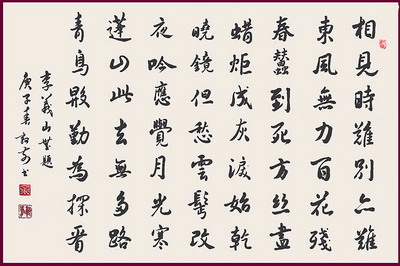 相見時難別亦難
東風無力百花殘
春蠶到死方絲盡
蜡炬成灰淚始乾
曉鏡但愁雲鬢改
夜吟應覺月光寒
蓬山此去無多路
青鳥殷勤為探看
李義山無題
庚子春书